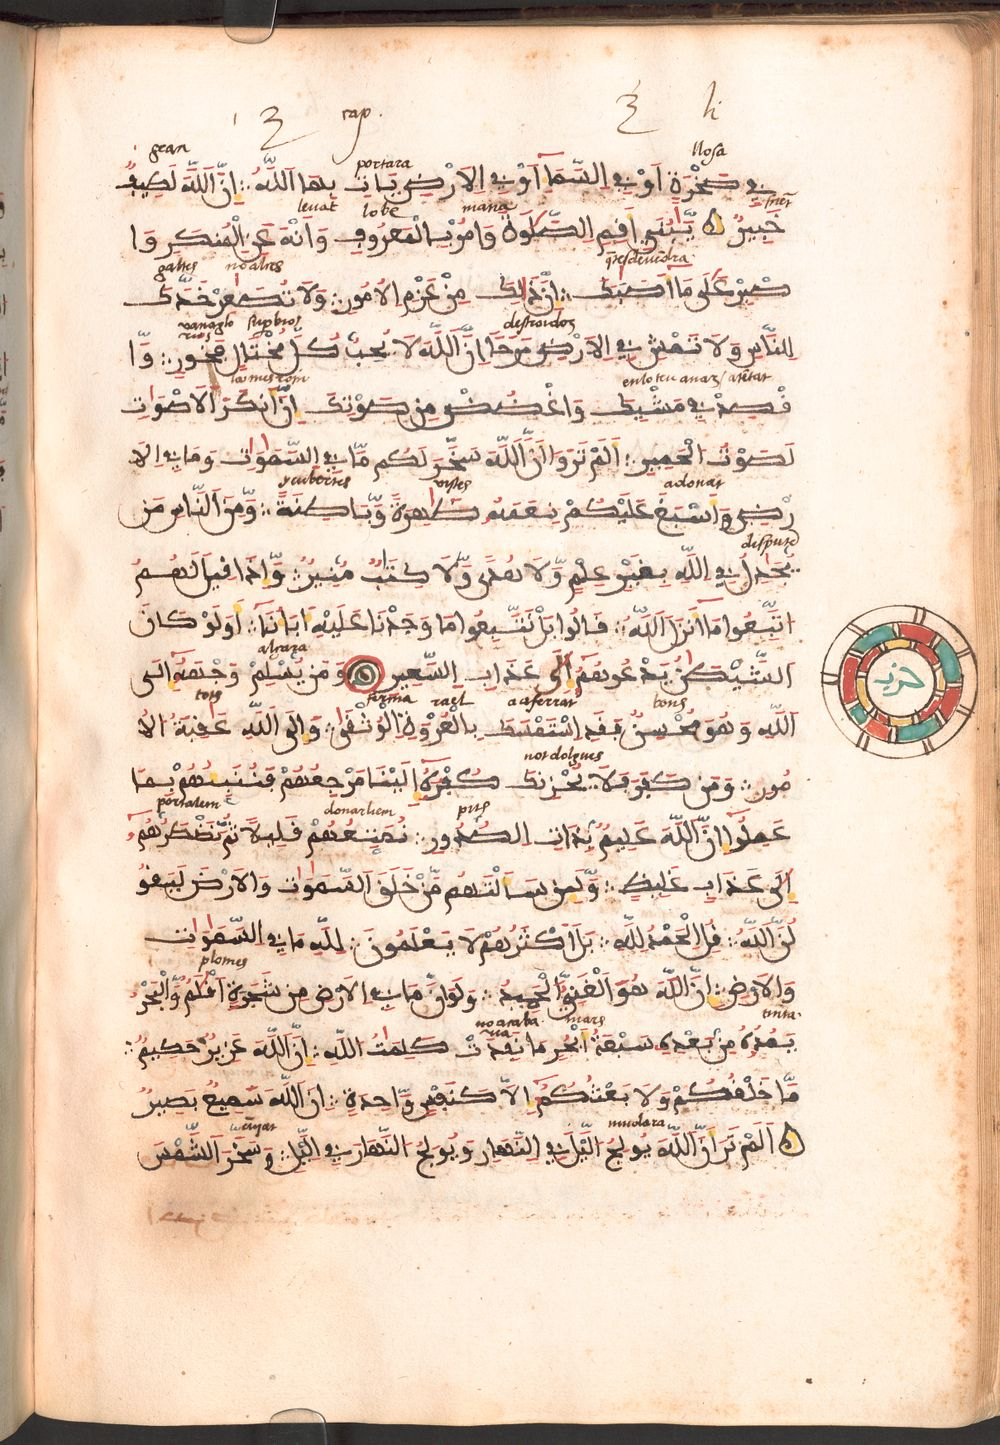 li 3 cap. 3 1
llosa portara gran
في صخرة أو في السمآ أو في الارض يات بها الله ∴ إن الله لطيف
mana lobe levat
خبير يبني أقم الصلوة وامر بالمعروف وانه عن المنكر وا
noaltes galtes
صبر على مآ أصبك ∴ إن ذلك من عزم الامور ∴ ولا تصعر خدك
supbios
للناس ولا تمش في الارض مرحا إن الله لا يحب كل مختال فخور ∴ وا
قصد في مشيك واغضض من صوتك إن أنكر الاصوات
لصوت الحمير ∴ ألم تروا أن الله سخر لكم ما في السموات وما في الا
adonat
رض وأسبغ عليكم نعمه ظهرة وباطنة ∴ ومن الناس من
يجدل في الله بغير علم ولا هدى ولا كتب منير ∴ وإذا قيل لهم
اتبعوا مآ أنزل الله ∴ قالوا بل نتبع ما وجدنا عليه ابانآ ∴ أولو كان
الشيطن يدعوهم إلى عذاب السعير ومن يسلم وجهه إلى
bons aaferrat ferma
الله وهو محسن فقد استمسك بالعروة الوثقى ∴ وإلى الله عقبة الا
not dolgues
مور ∴ ومن كفر فلا يحزنك كفره إلينا مرجعهم فننبئهم بما
pits donarliem portalem
عملوا إن الله عليم بذات الصدور ∴ نمتعهم قليلا ثم نضطرهم
إلى عذاب غليظ ∴ ولين سألتهم من خلق السموات والارض ليقو
لن الله ∴ قل الحمد لله ∴ بل أكثرهم لا يعلمون ∴ لله ما في السموات
plomes
والارض ∴ إن الله هو الغني الحميد ∴ ولو أن ما في الارض من شجرة أقلم والبحر
tinta mars
يمده من بعده سبعة أبحر ما نفدت كلمت الله ∴ إن الله عزيز حكيم ∴
ما خلقكم ولا بعثكم إلا كنفس واحدة ∴ إن الله سميع بصير
mudara
ألم تر أن الله يولج اليل في النهار ويولج النهار في اليل ∴ وسخر الشمس
حزب